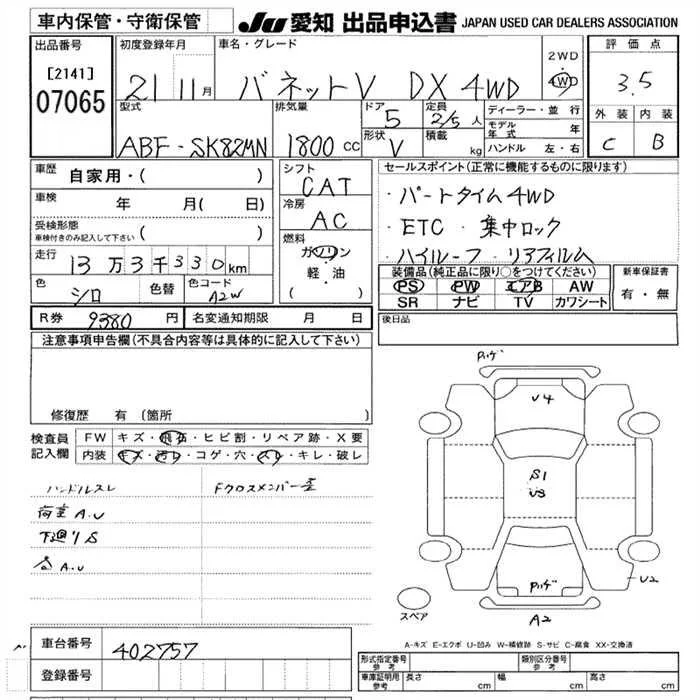 車内保管・守衛保管
JU 愛知 出品申込書 JAPAN USED CAR DEALERS ASSOCIATION
出品番号
[2141]
07065
初度登録年月
21 11月
車名・グレード
バネットV DX 4WD
2WD
4WD
評価点
3.5
外装 内装
C B
型式
ABF-SK82MN
排気量
1800 CC
ドア
5
定員
2/5人
形状
V
積載
kg
ディーラー・並行
モデル年式 年
ハンドル 左・右
車歴
自家用・( )
車検 年 月( 日)
受検形態
車検付きのみ記入して下さい ( )
走行 13万3千330km
色 シロ 色替 色コード A2W
シフト
CAT
冷房
AC
燃料
ガソリン
・
軽・油
( )
セールスポイント(正常に機能するものに限ります)
・パートタイム4WD
・ETC ・集中ロック
・ハイルーフ ・リアフィルム
装備品(純正品に限り○をつけてください)
PS PW エアB AW
SR ナビ TV カワシート
新車保証書
有・無
R券 9380 円 名変通知期限 月 日
後日品
注意事項申告欄(不具合内容等は具体的に記入して下さい)
修復歴 有 (箇所 )
検査員記入欄
FW キズ・飛石・ヒビ割・リペア跡・X要
内装 キズ・汚レ・コゲ・穴・スレ・キレ・破レ
ハンドルスレ Fクロスメンバー歪
荷室A.U
下廻りS
A.U
ハゲ
U4
S1
U3
ハゲ
U2
A2
スペア
A-キズ E-エクボ U-凹み W-補修跡 S-サビ C-腐食 XX-交換済
車台番号 402757
登録番号
形式指定番号 参考
類別区分番号 参考
車庫証明用 参考 長さ cm 幅 cm 高さ cm